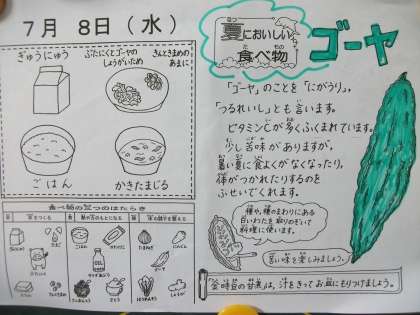 7月 8日(水)
ぎゅうにゅう
ぶたにくとゴーヤの
しょうがいため
きんときまめの
あまに
ごはん
かきたまじる
食べ物の三つのはたらき
夏においしい
食べ物
ゴーヤ
「ゴーヤ」のことを「にがうり」、
「つるれいし」とも言います。
ビタミンCが多くふくまれています。
少し苦味がありますが、
暑い夏に食よくがなくなったり、
体がつかれたりするのを
ふせいでくれます。
種や、種のまわりにある
白いわたを取りのぞいて
料理に使います。
苦い味を楽しみましょう。
「金時豆の甘煮」は、汁をきってお皿にもりつけましょう。